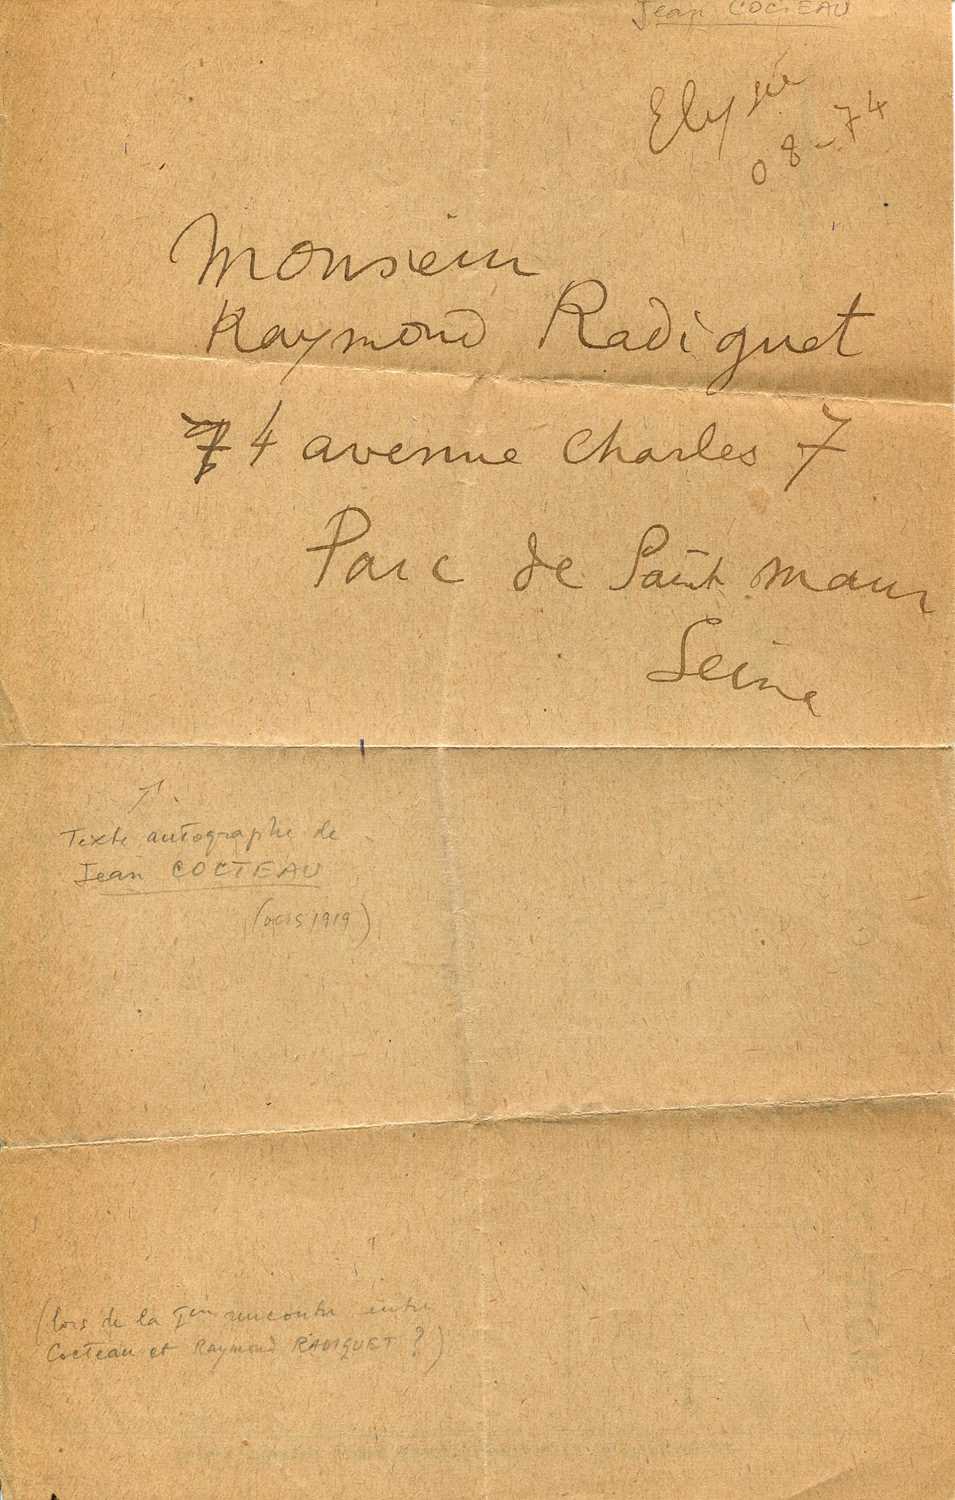 Jean COCTEAU
Elysée
08-74
Monsieur
Raymond Radiguet
74 avenue Charles 7
Parc de Saint Maur
Seine
Texte autographe de
Jean COCTEAU
1919)
(lors de la rencontre entre
Cocteau et Raymond RADIGUET ?)